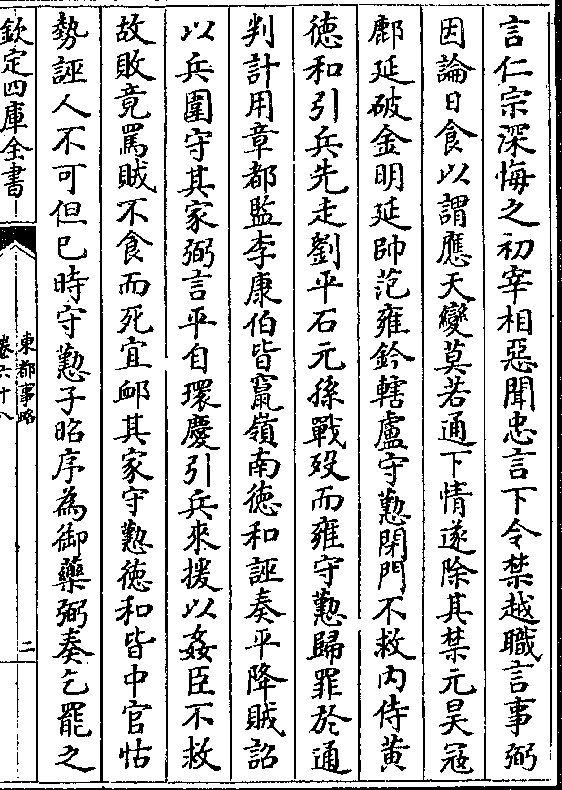 言仁宗深悔之初宰相惡聞忠言下令禁越職言事弼
因論日食以謂應天變莫若通下情遂除其禁元昊冦
鄜延破金明延帥范雍鈐轄盧守懃閉門不救内侍黄
徳和引兵先走劉平石元孫戰歿而雍守懃歸罪於通
判計用章都監李康伯皆竄嶺南徳和誣奏平降賊詔
以兵圍守其家弼言平自環慶引兵來援以姦臣不救
故敗竟罵賊不食而死宜䘏其家守懃徳和皆中官怙
勢誣人不可但已時守懃子昭序為御藥弼奏乞罷之
欽定四庫全書
東都事略
卷六十八
二